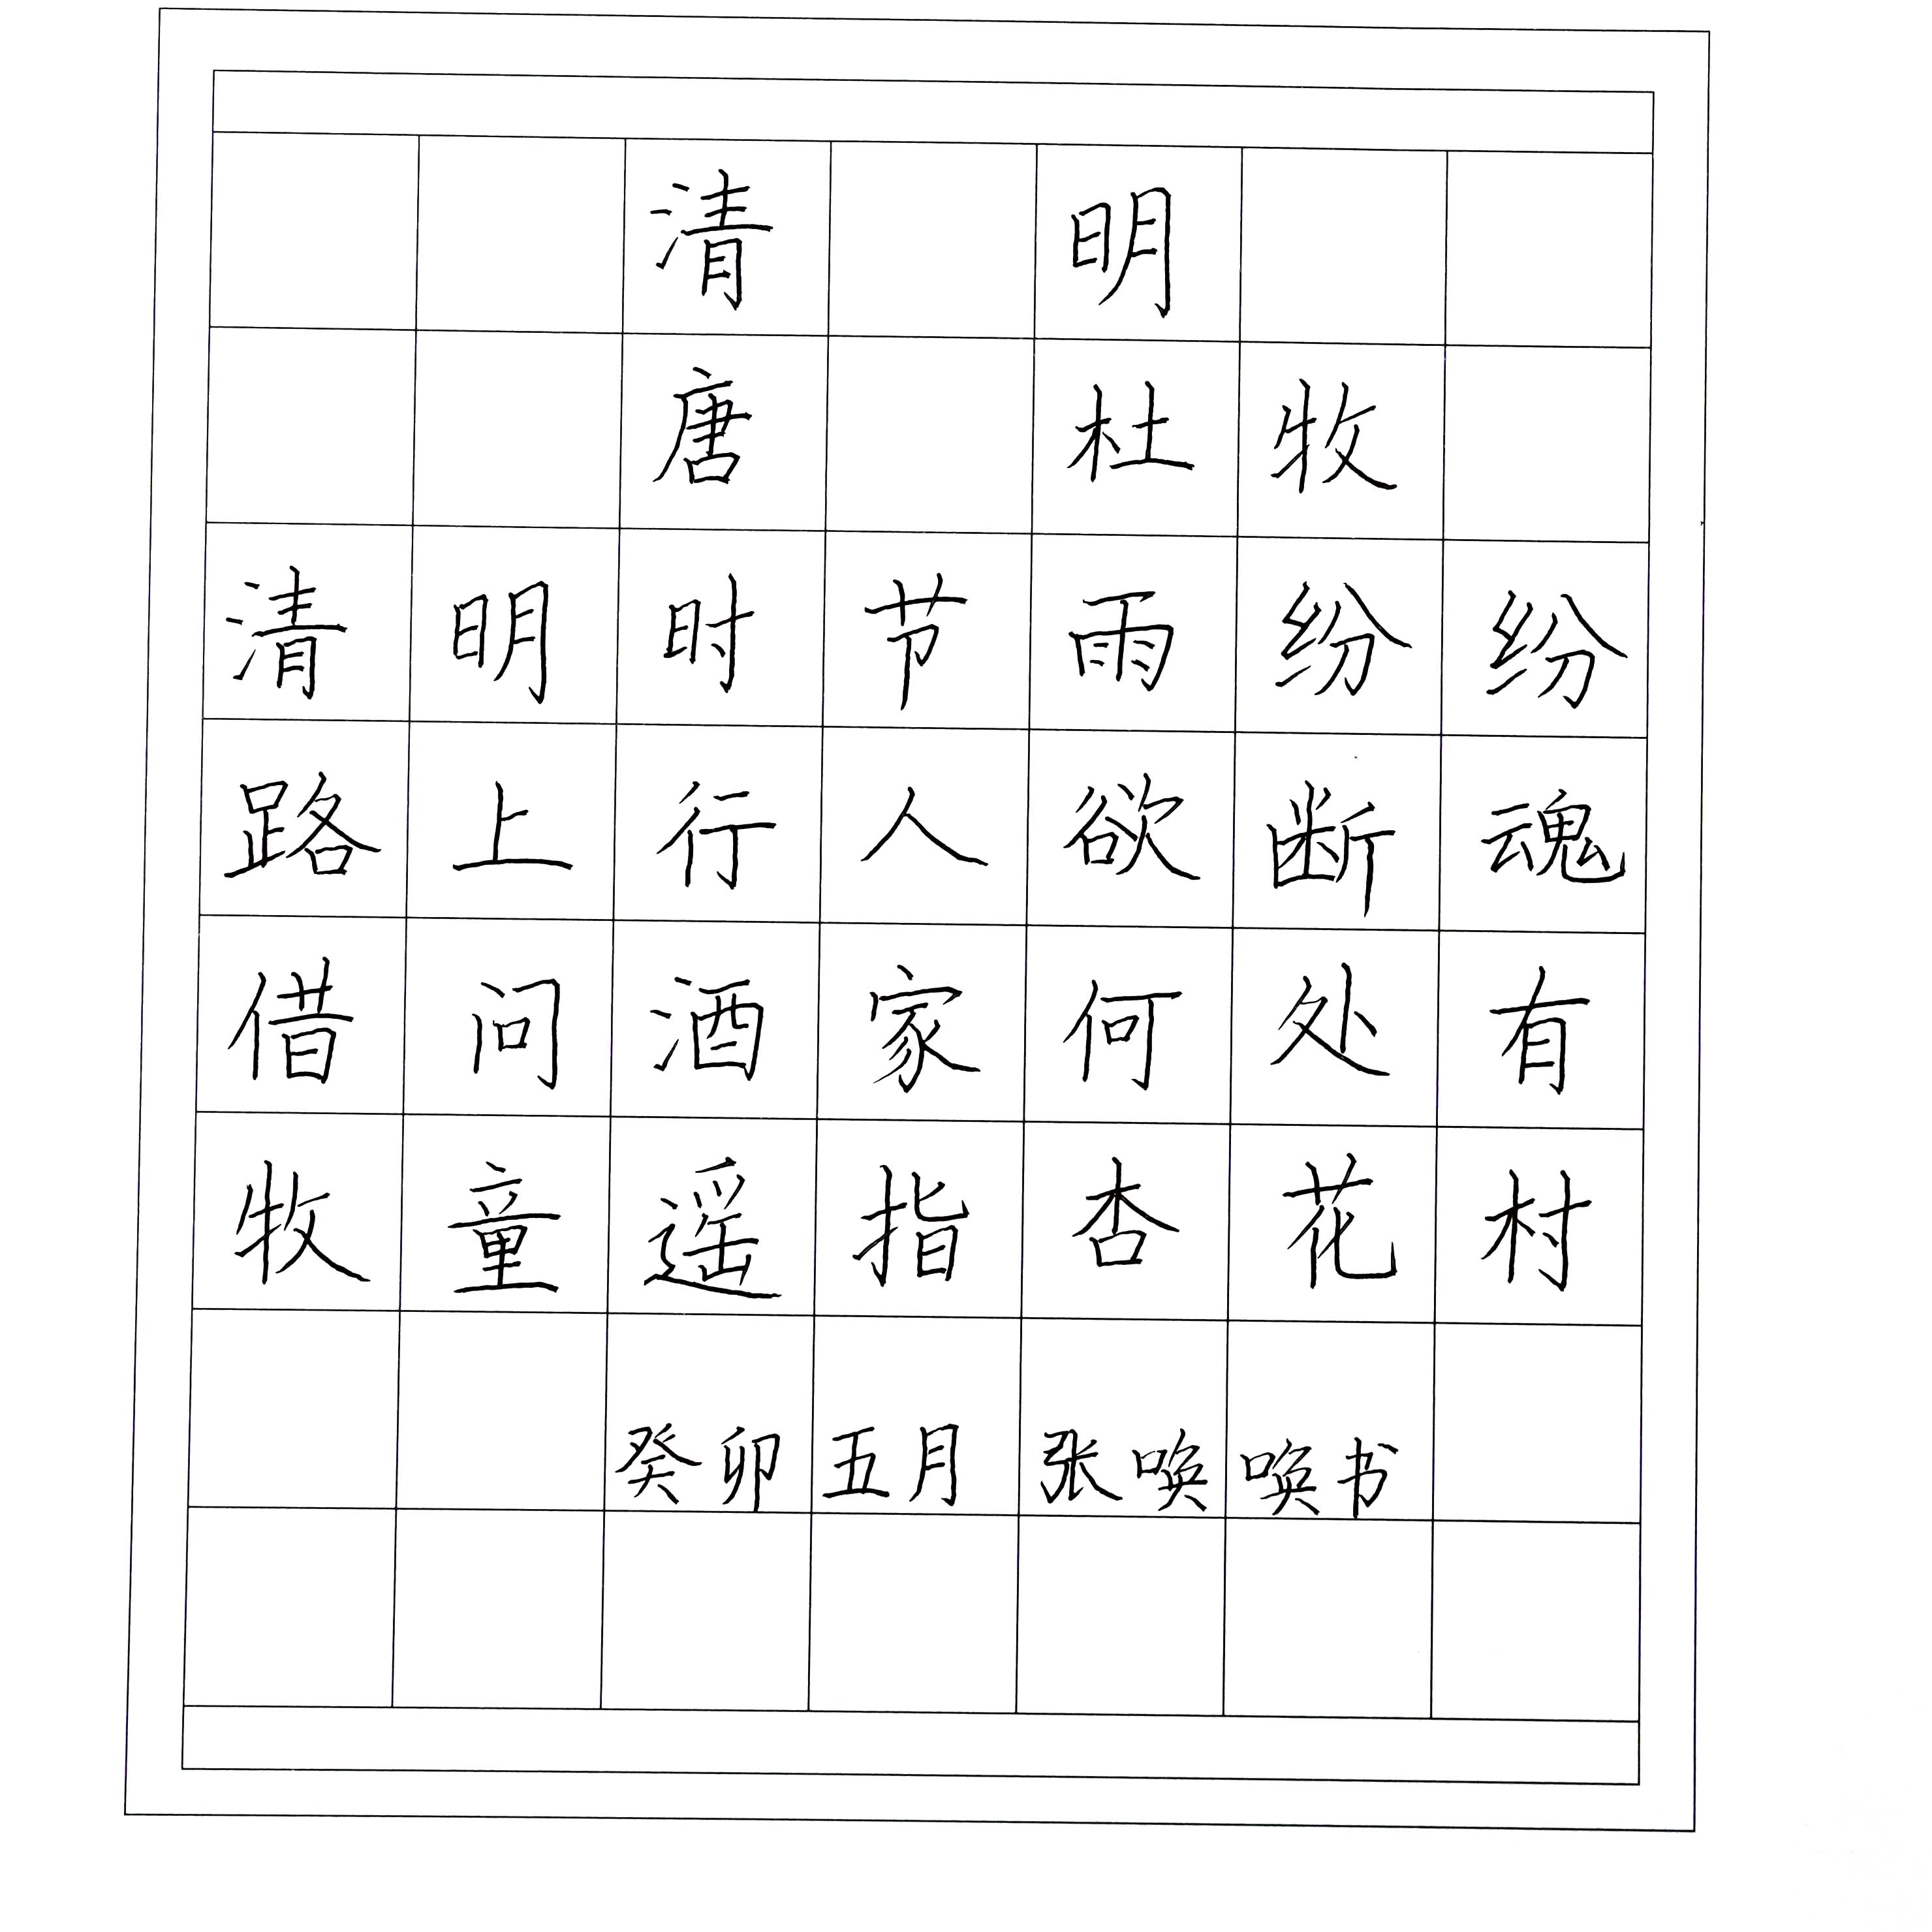 清明
唐 杜牧
清明时节雨纷纷
路上行人欲断魂
借问酒家何处有
牧童遥指杏花村
癸卯五月张唤唤书